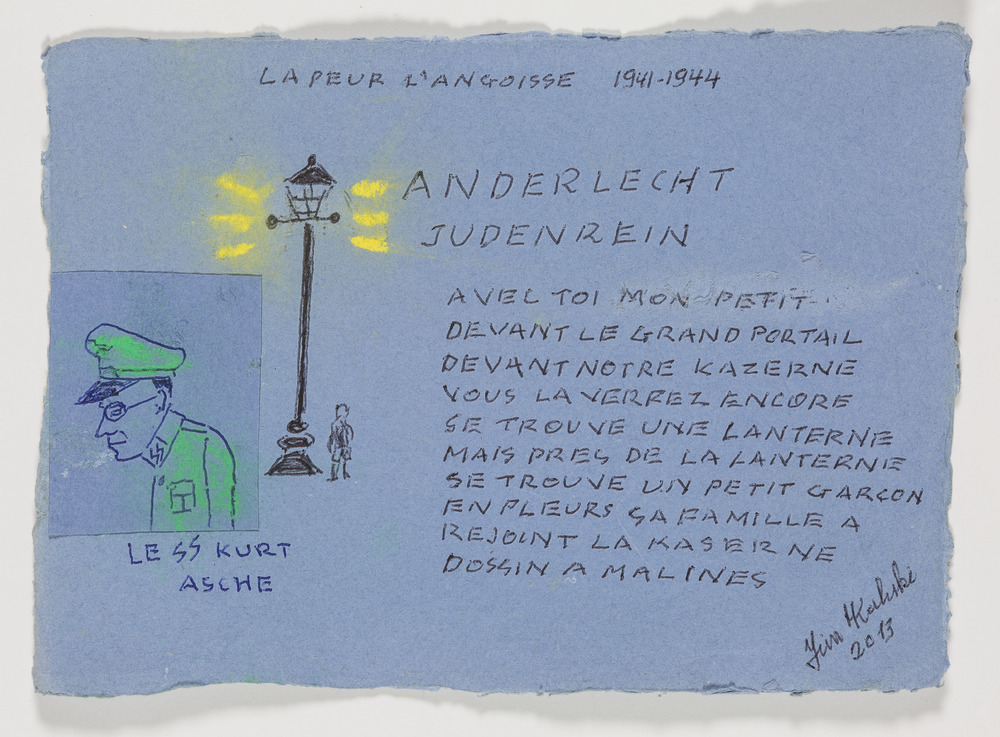 LA PEUR L'ANGOISSE 1941-1944
ANDERLECHT
JUDENREIN
AVEC TOI MON PETIT
DEVANT LE GRAND PORTAIL
DEVANT NOTRE KAZERNE
VOUS LA VERREZ ENCORE
SE TROUVE UNE LANTERNE
MAIS PRES DE LA LANTERNE
SE TROUVE UN PETIT GARÇON
EN PLEURS SA FAMILLE A
REJOINT LA KASERNE
DOSSIN A MALINES
LE SS KURT
ASCHE
2013